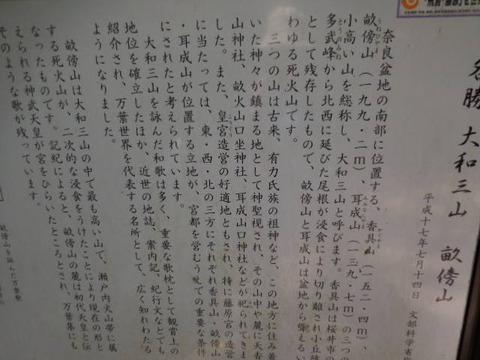 名勝 大和三山 畝傍山
平成十七年七月十四日 文部科学省
奈良盆地の南部に位置する、香具山(一五二・四m)、
畝傍山(一九九・二m)、耳成山(一三九・七m)の三つの
小高い山を総称し、大和三山と呼びます。香具山は桜井市の
多武峰から北西に延びた尾根が浸食により切り離され小丘
として残存したもので、畝傍山と耳成山は盆地から聳える
わゆる死火山です。
三つの山は古来、有力氏族の祖神など、この地方に住み着
いた神々が鎮まる地として神聖視され、その山中や麓に天香
山神社、畝火山口坐神社、耳成山口神社などが祀られてきま
した。また、皇宮造営の好適地ともされ、特に藤原宮の造営
に当たっては、東・西・北の三方にそれぞれ香具山・畝傍山
・耳成山が位置する立地が、宮都を営むうえでの重要な条件
にされたと考えられています。
大和三山を詠んだ和歌は多く、重要な歌枕として観賞上の
地位を確立したほか、近世の地誌、案内記、紀行文などでも
紹介され、万葉世界を代表する名所として、広く知れわたる
ようになりました。
畝傍山は大和三山の中で最も高い山で、瀬戸内火山帯に属
する死火山が、二次的な浸食をうけたことにより現在の形と
なったものです。記紀によると、畝傍山の麓は初代天皇と伝
えられる神武天皇が宮をひらいたところとされ、万葉集にも
そのような歌が残っています。
畝傍山を詠んだ万葉歌